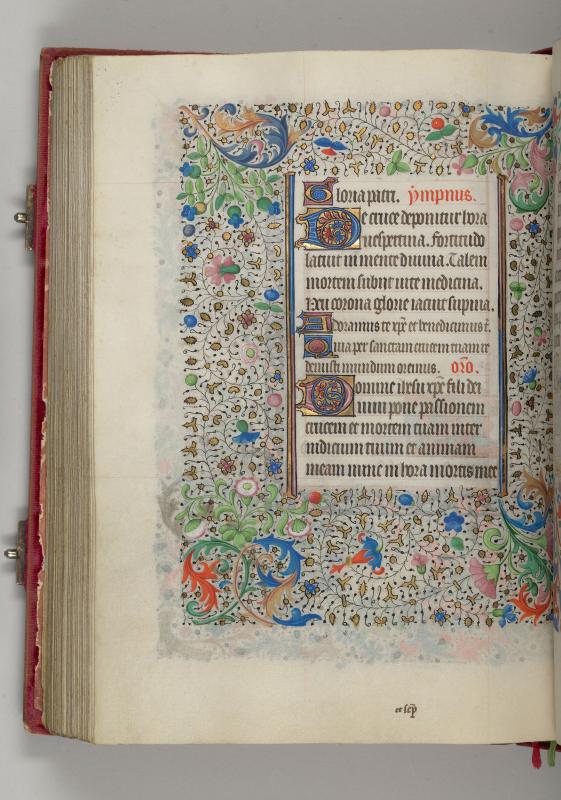 Gloria patri. ympnus.
De cruce deponitur hora
vespertina. Fortitudo
latuit in mente divina. Talem
mortem subiit vite medicina.
Heu corona glorie iacuit supina.
Adoramus te xpe et benedicimus t.
Quia per sanctam crucem tuam re
demisti mundum oremus. oro.
Domine ihesu xpe fili dei
vivi pone passionem
crucem et mortem tuam inter
iudicium tuum et animam
meam nunc in hora mortis mee